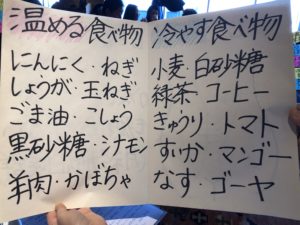 温める食べ物
にんにく・ねぎ
しょうが・玉ねぎ
ごま油・こしょう
黒砂糖・シナモン
羊肉・かぼちゃ
冷やす食べ物
小麦・白砂糖
緑茶・コーヒー
きゅうり・トマト
すいか・マンゴー
なす・ゴーヤ